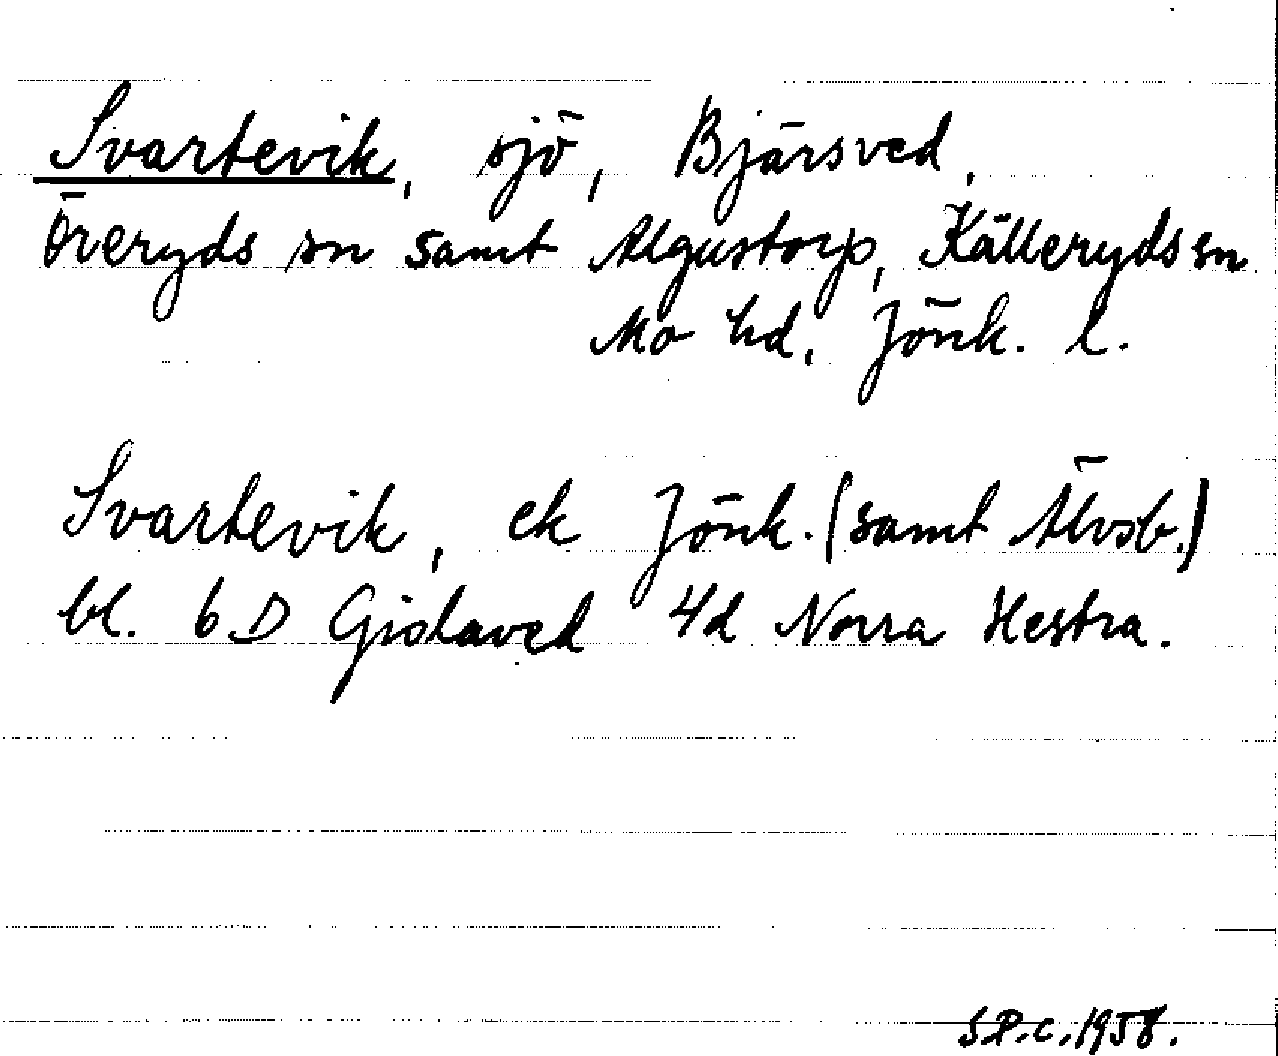 Svartevik, sjö, Bjärsved,
Överyds sn samt Algustorp, Källeryds sn
Mo hd, Jönk. l.
Svartevik, ek Jönk. (samt Älvsb.)
bl. 6D Gislaved 4d Norra Hestra.
S.P.C. 1958.